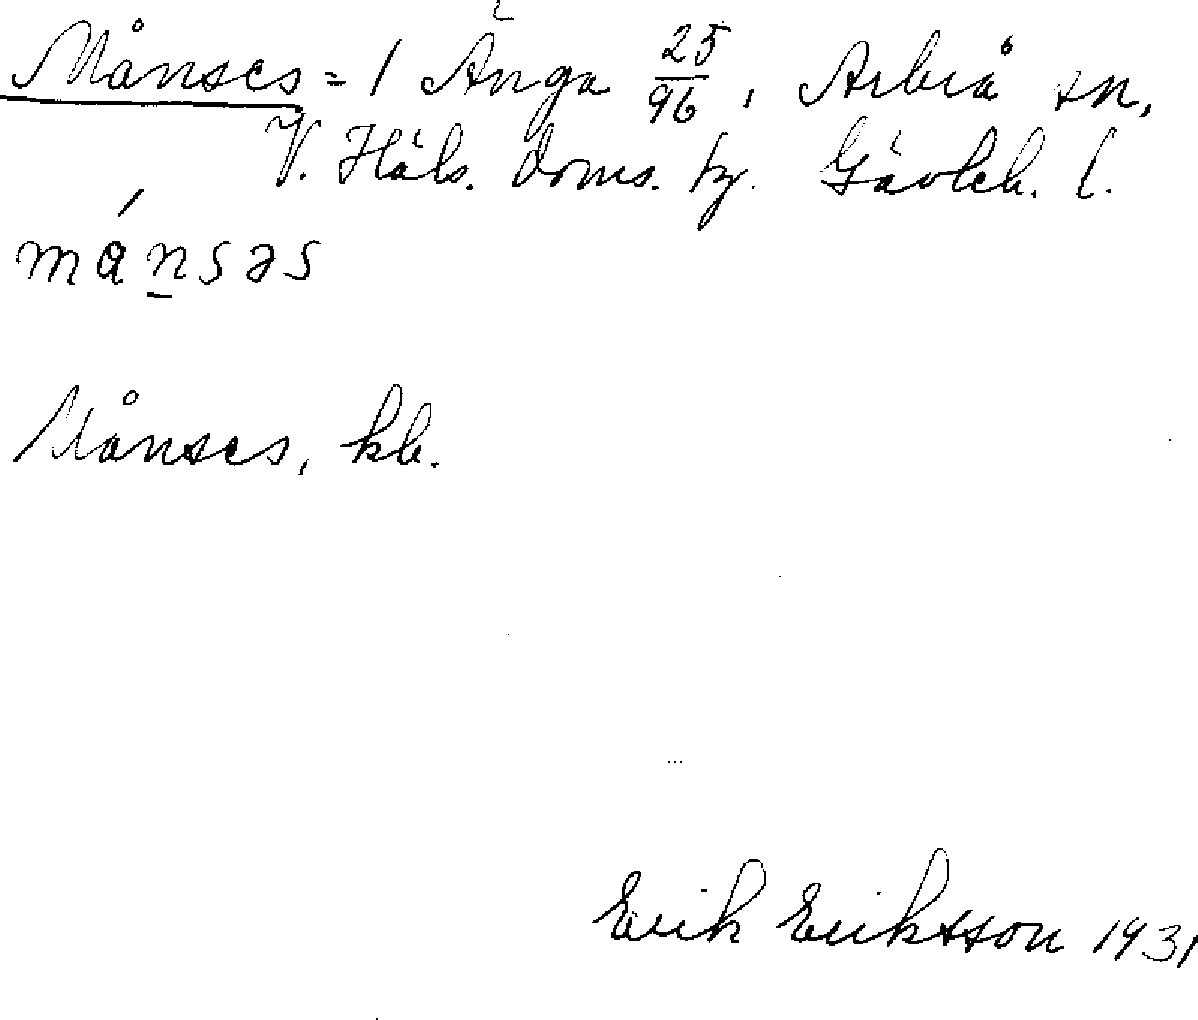 Månses = 1 Änga 25/96, Arbrå sn,
V. Häls. doms. hg. Gävleb. l.
mánsəs
Månses, kb.
Erik Eriksson 1931